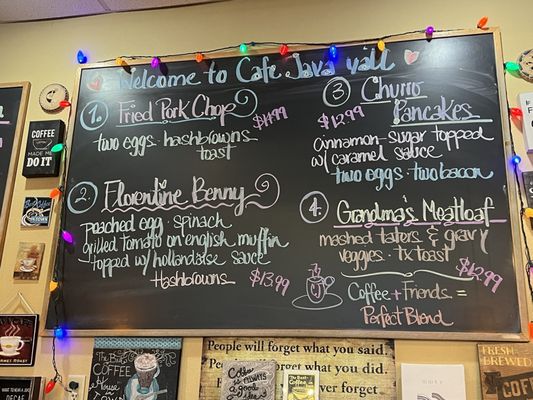 Welcome to Cafe Java y'all
1. Fried Pork Chop $14.99
two eggs · hashbrowns
toast
2. Florentine Benny
poached egg · spinach
grilled tomato on english muffin
topped w/ hollandaise sauce
Hashbrowns $13.99
3 Churro
Pancakes
$12.99
cinnamon-sugar topped
w/ caramel sauce
two eggs · two bacon
4. Grandma's Meatloaf
mashed taters & gravy
veggies · tx toast $12.99
Coffee + Friends =
Perfect Blend
COFFEE
MADE ME
DO IT
People will forget what you said.
People will forget what you did.
forget
COFFEE
House
COFFEE
FRESH BREWED
COFFEE
DECAF